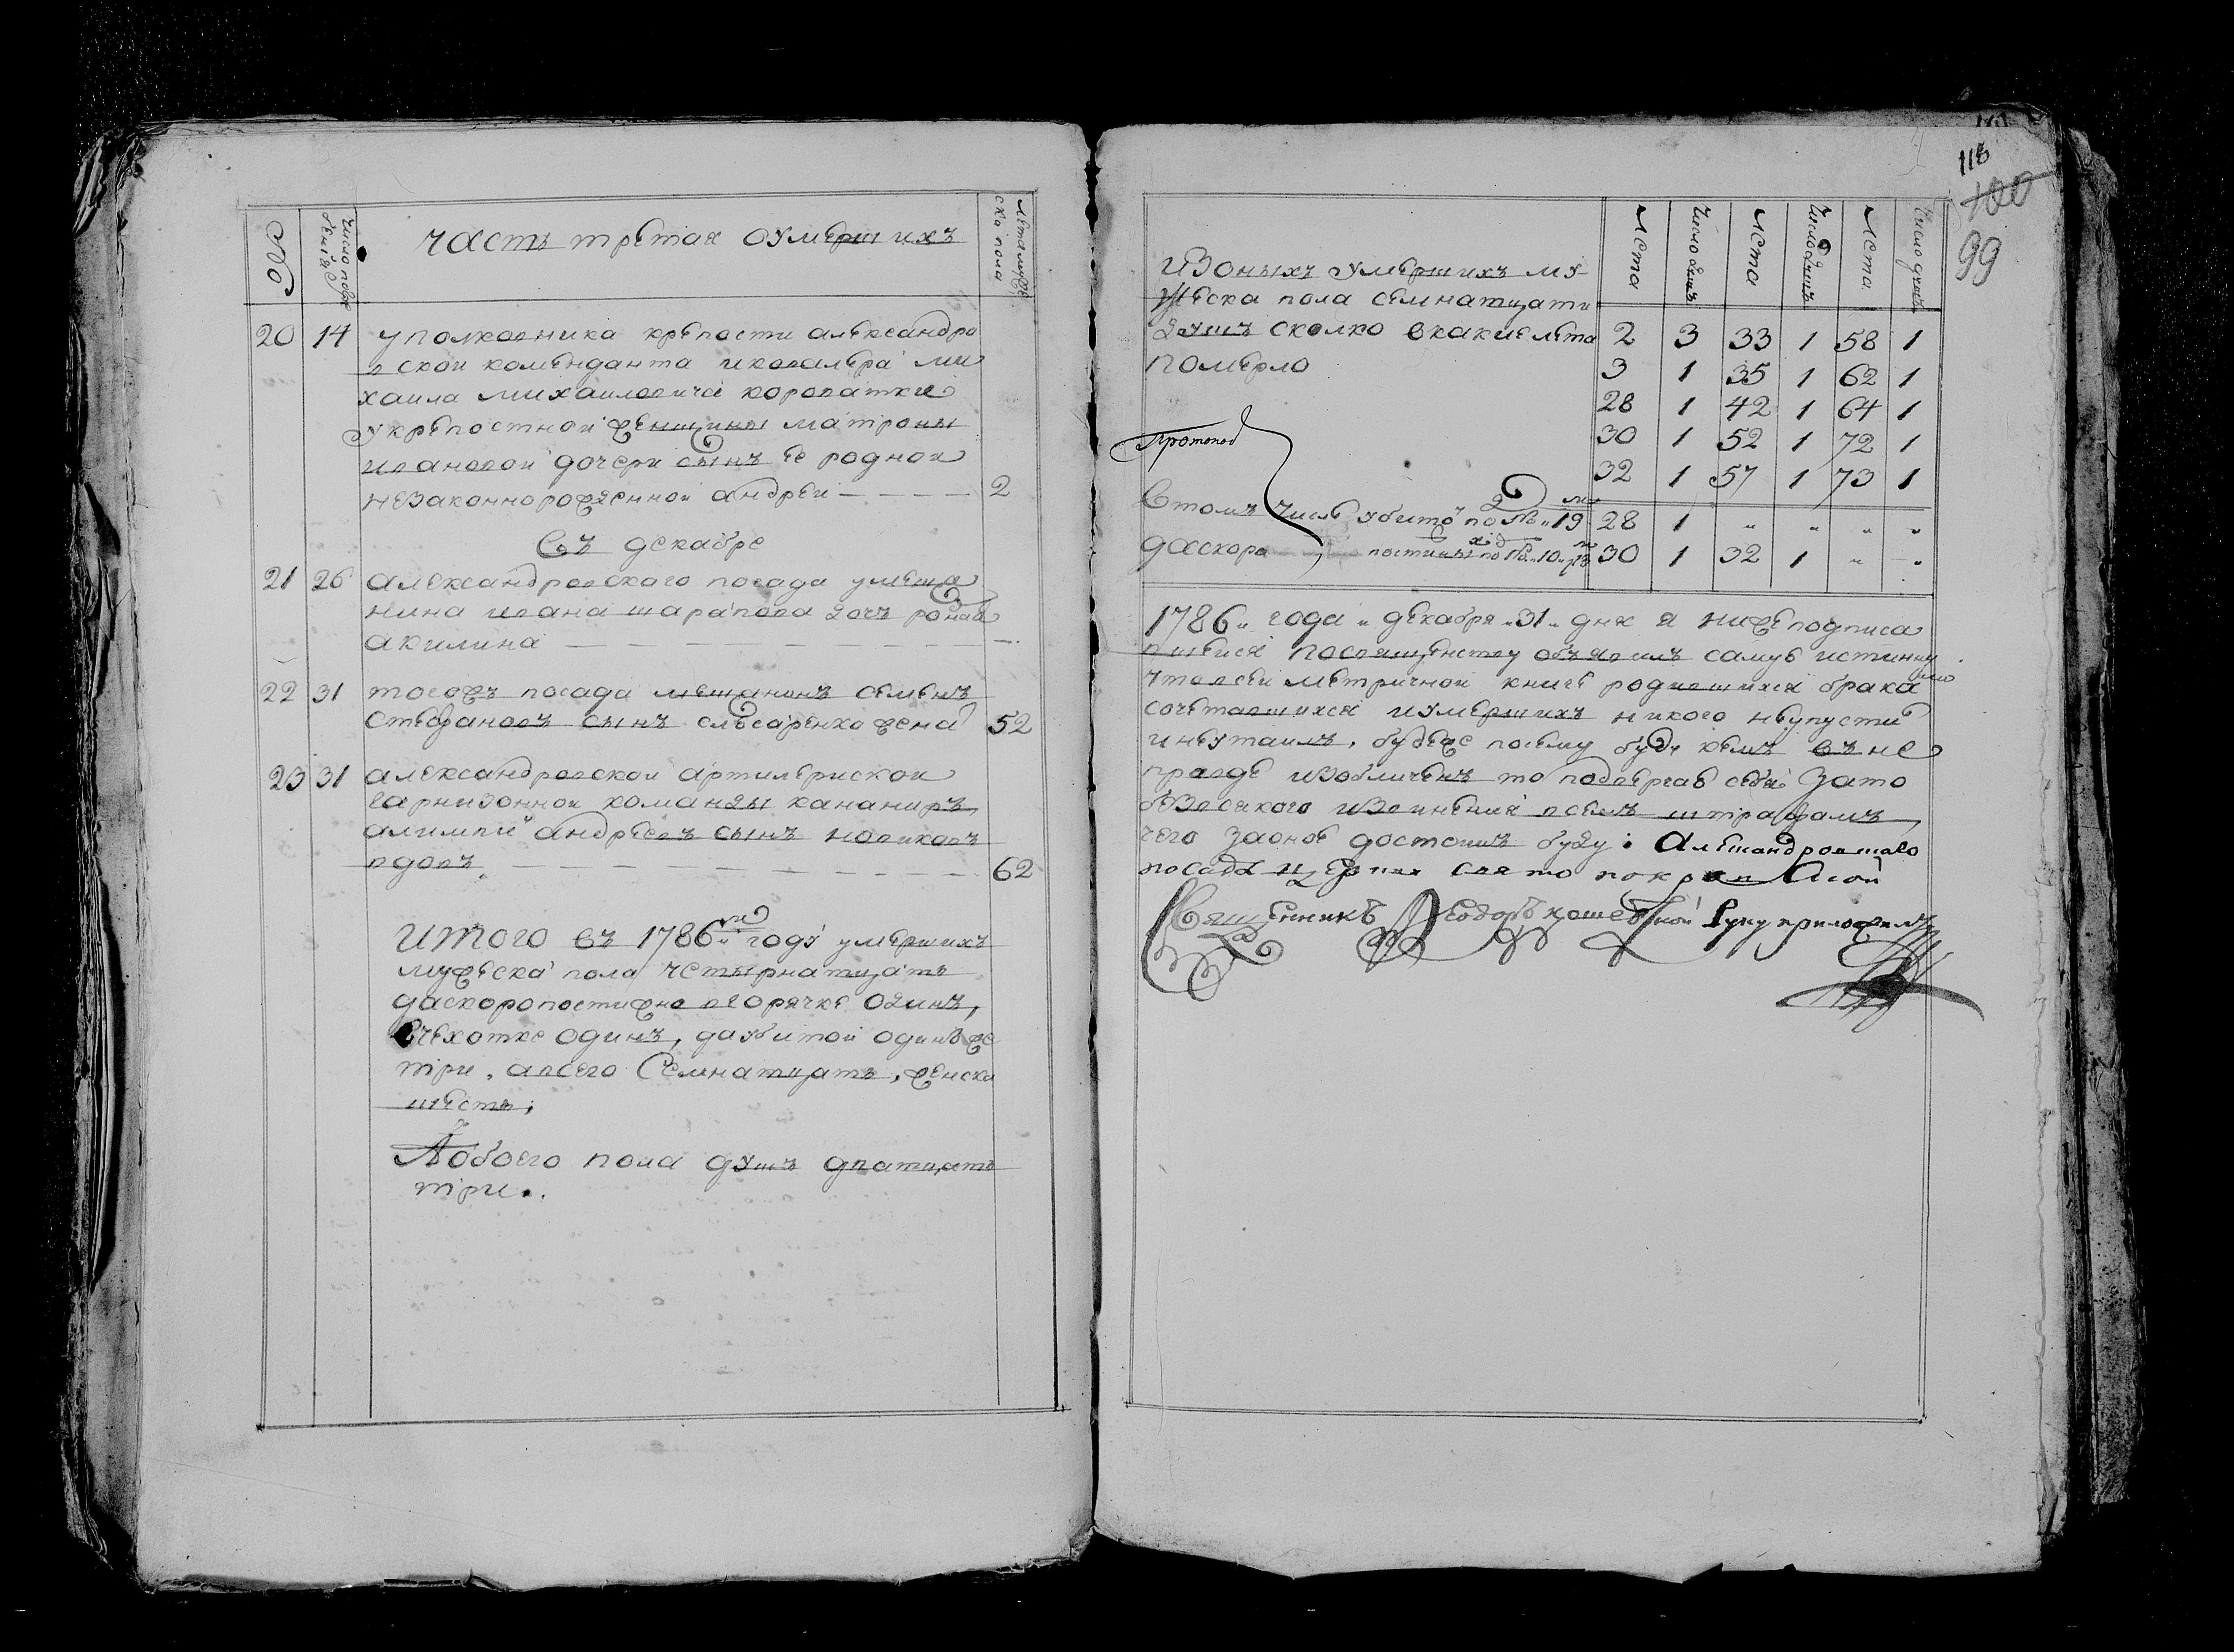 №
число повсе дении
часть третая оумерших
лета мужеска пола
20 14 у полковника крепости александро
вской коменданта и ковалера ми
хаила михаиловича коропатки
у крепостной женщины матроны
ивановой дочери сынъ ее родной
незаконнорожденной андреи — 2
Въ декабре
21 26 александровского посада умеща
нина ивана шарапова дочъ
акилина —
22 31 тогожъ посада мещанинъ семенъ
стефановъ сынъ слесаренко жена 52
23 31 александровской артилериской
гарнизонной команды кананиръ
алимпий андреевъ сынъ новиковъ
вдовъ 62
Итого въ 1786м годý умершихъ
мужеска пола четырнатцать
даскоропостижно вгорячке одинъ,
вчехотке одинъ, даубитой одинъ же
три. авсего семнатцать, женска
шесть,
Аобоего пола душъ дватцать
три.
110
118
100
99
изоныхъ умершихъ му
жеска пола семнатцати
душъ сколко вкакие лета
померло
лета число душъ лета число душъ лета число душъ
2 3 33 1 58 1
3 1 35 1 62 1
28 1 42 1 64 1
30 1 52 1 72 1
32 1 57 1 73 1
Протопоп
Втомъ числе убито по № 19 28 1 " " " "
даскоро постижны по № 10 30 1 32 1 " "
1786" года " декабря "31" дня я нижеподписа
вшейся посвященству объявилъ самую истинну
чтовсей метричной книге родившихся брака
сочетавшихся иумершихъ никого неупустиб
инеутаилъ, будеже посему буду кемъ въ не
правде изобличенъ то подвергаю себя зато
безвсякого извинения всемъ штрафамъ,
чего заоное достоинъ буду: Александровшаго
посада церкви свято покровской
Священникъ Феодоръ кошевной руку приложилъ